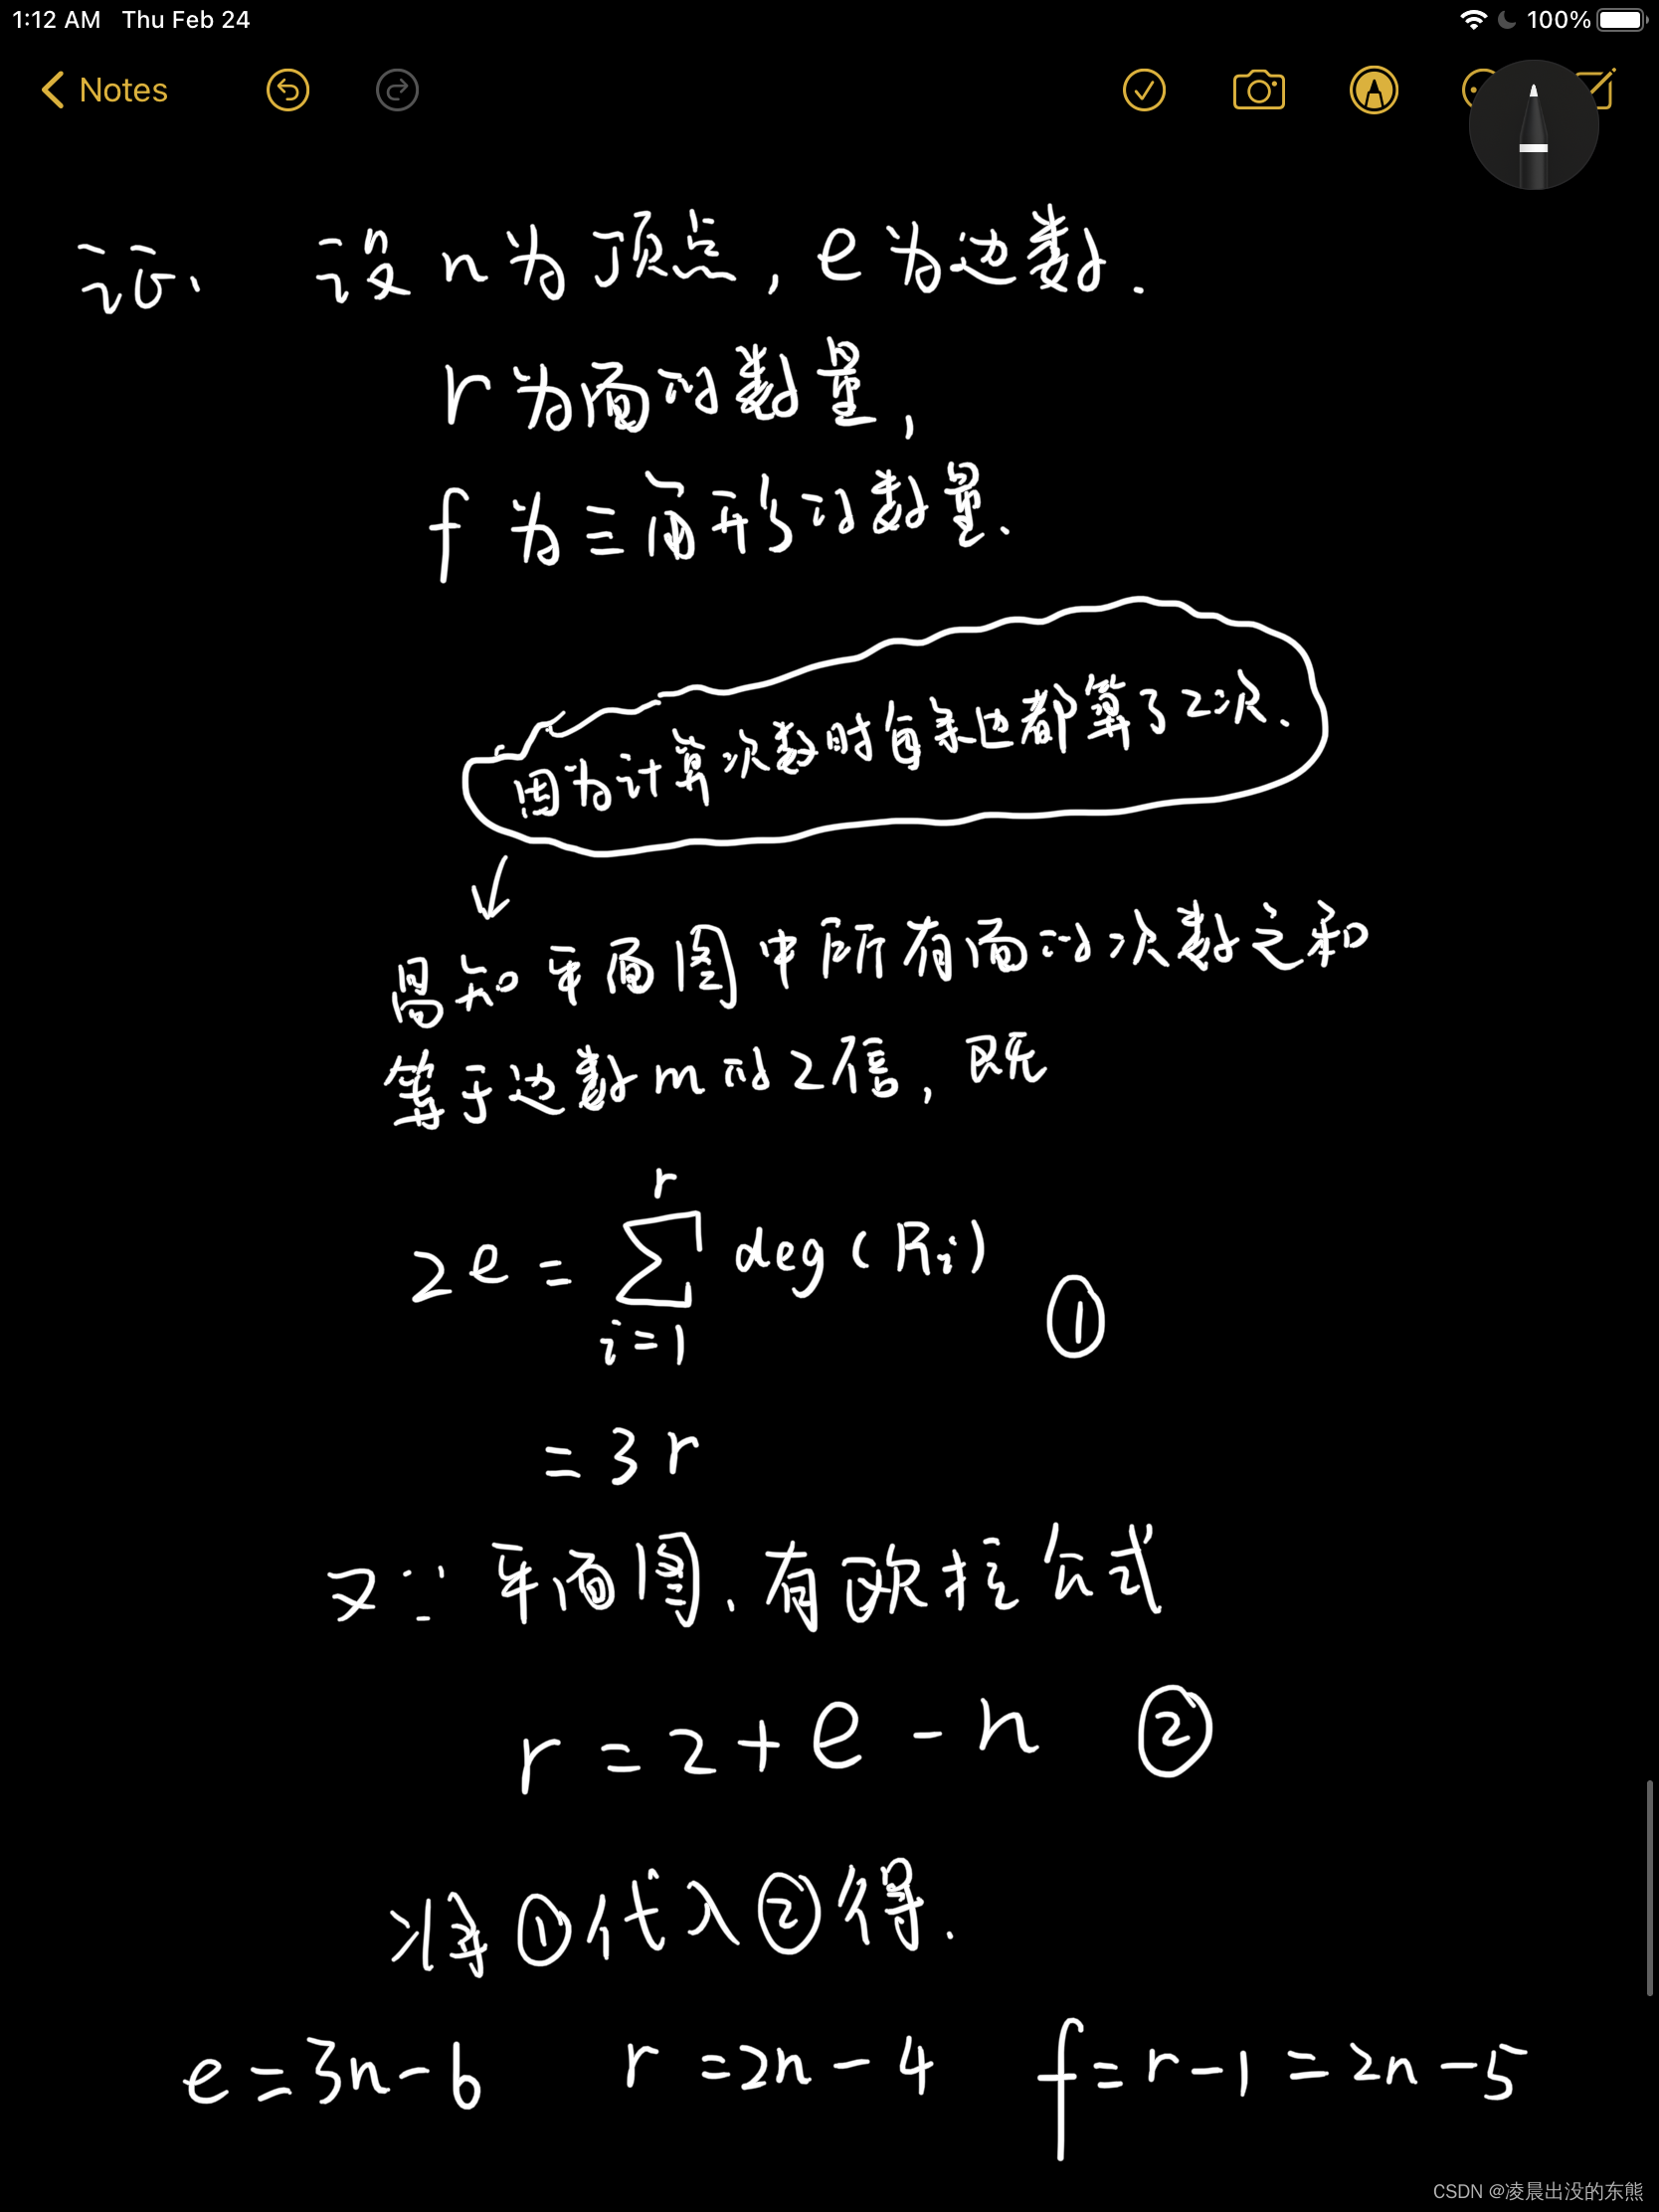 1:12 AM Thu Feb 24 100%
Notes
证、 设 n 为顶点, e 为边数.
r 为面的数量,
f 为三角形的数量.
因为计算次数时每条边都算了2次.
易知平面图中所有面的次数之和
等于边数m的2倍, 既
2e = \sum_{i=1}^{r} deg(Ri) ①
= 3r
又∵ 平面图、有欧拉公式
r = 2 + e - n ②
将①代入②得.
e = 3n - 6 r = 2n - 4 f = r - 1 = 2n - 5
CSDN @凌晨出没的东熊